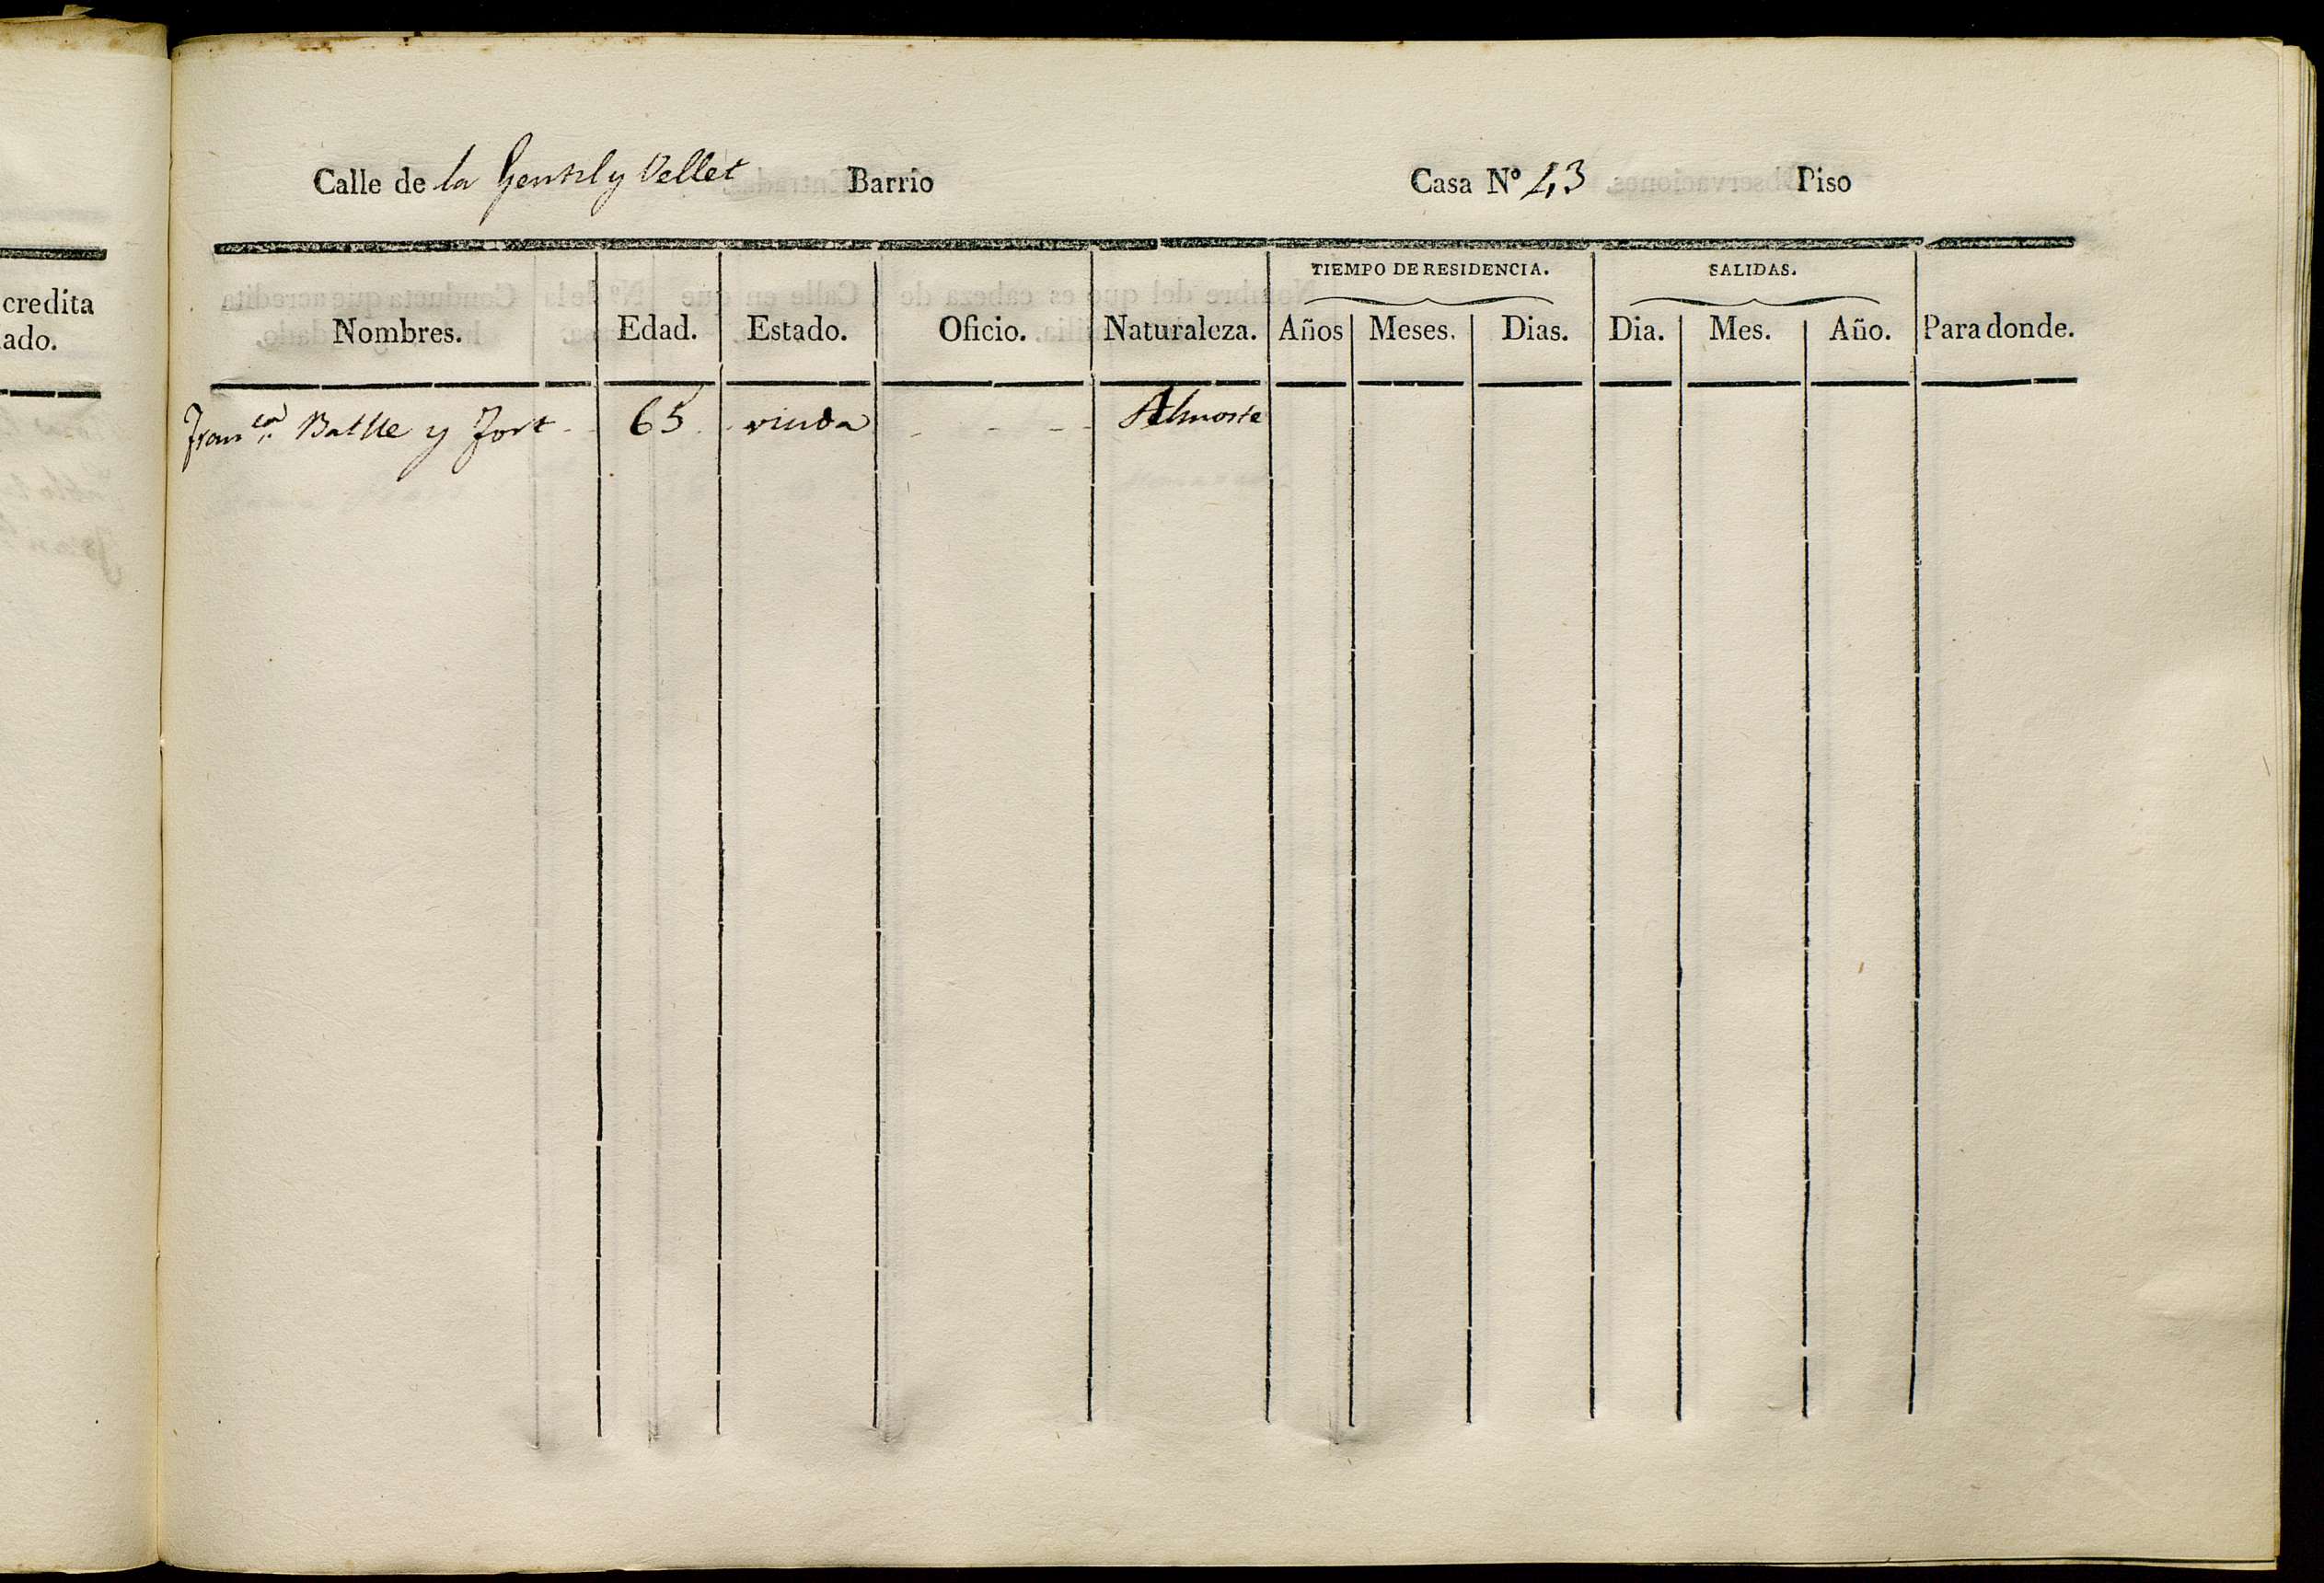 credita
ado.
Calle de la Gentil y Vellet Barrio Casa Nº 43 Piso
TIEMPO DE RESIDENCIA. SALIDAS.
Nombres. Edad. Estado. Oficio. Naturaleza. Años Meses. Dias. Dia. Mes. Año. Para donde.
Fran.ca Batlle y Fort 65 viuda - - - Almoste